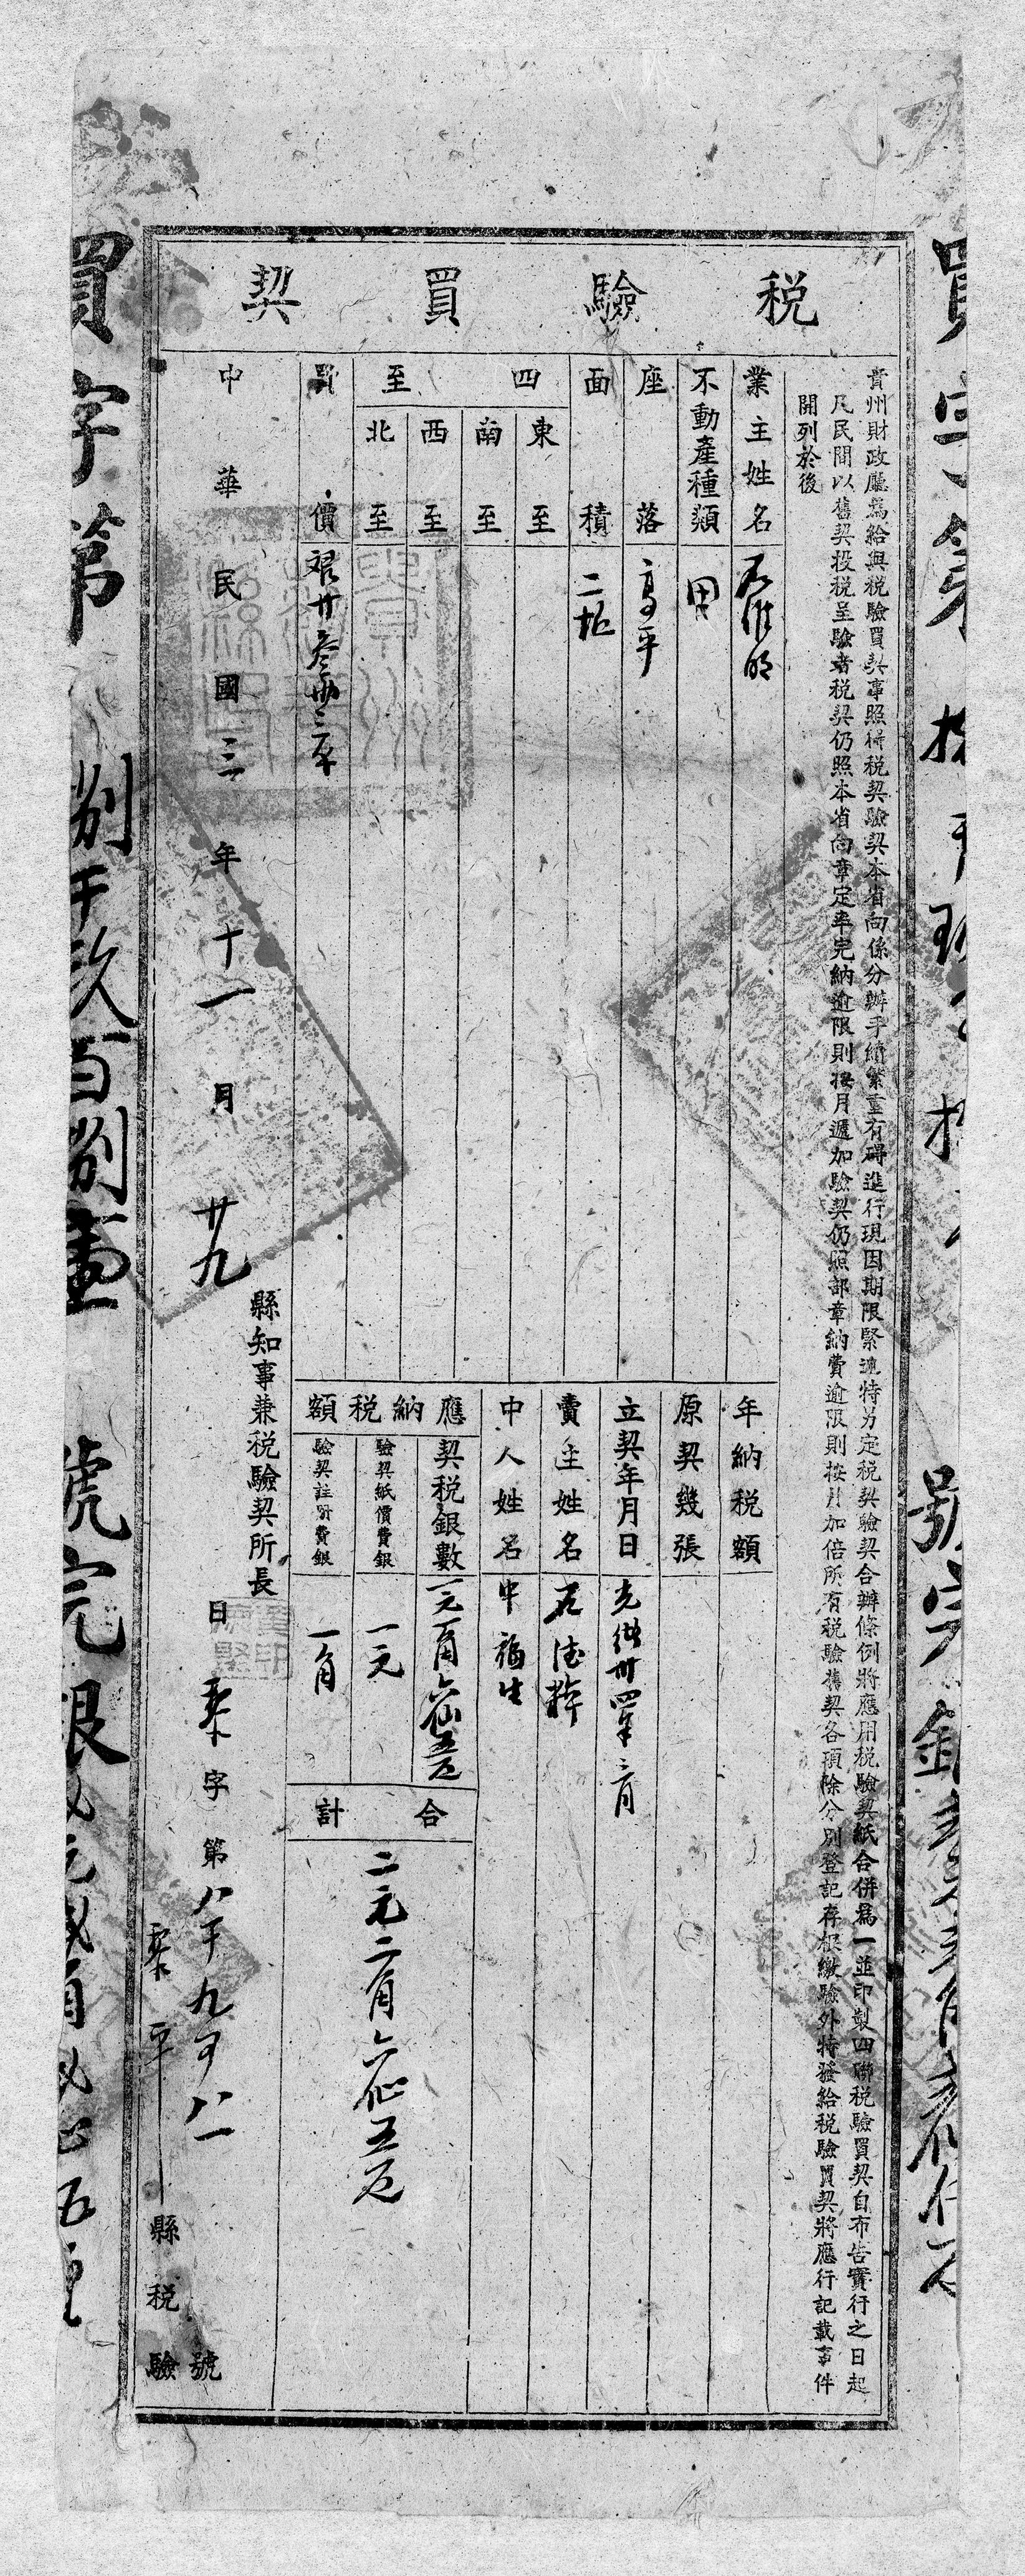 稅驗買契
貴州財政廳爲給與稅驗買契事照得稅契驗契本省向係分辦手續繁重有碍進行現因期限緊迫特另定稅契驗契合辦條例將應用稅驗契紙合併爲一並印製四聯稅驗買契自布告實行之日起
凡民間以舊契投稅呈驗者稅契仍照本省向章定率完納逾限則按月遞加驗契仍照部章納費逾限則按月加倍所有稅驗舊契各項除分別登記存根繳驗外特發給稅驗買契將應行記載事件
開列於後
業主姓名 石維明
不動產種類 田
座落 高平
面積 二坵
四至
東至
南至
西至
北至
買價 銀廿叁兩三錢
年納稅額
原契幾張
立契年月日 光緒卅四年二月
賣主姓名 石德粹
中人姓名 中福生
應納稅額
契稅銀數 一元一角六仙五厘
驗契紙價費銀 一元
驗契註冊費銀 一角
合計
二元二角六仙五厘
縣知事兼稅驗契所長
中華民國三年十一月廿九日 黎字第八千九百八一號
黎平縣稅驗
買字第捌千玖百捌壹號完銀